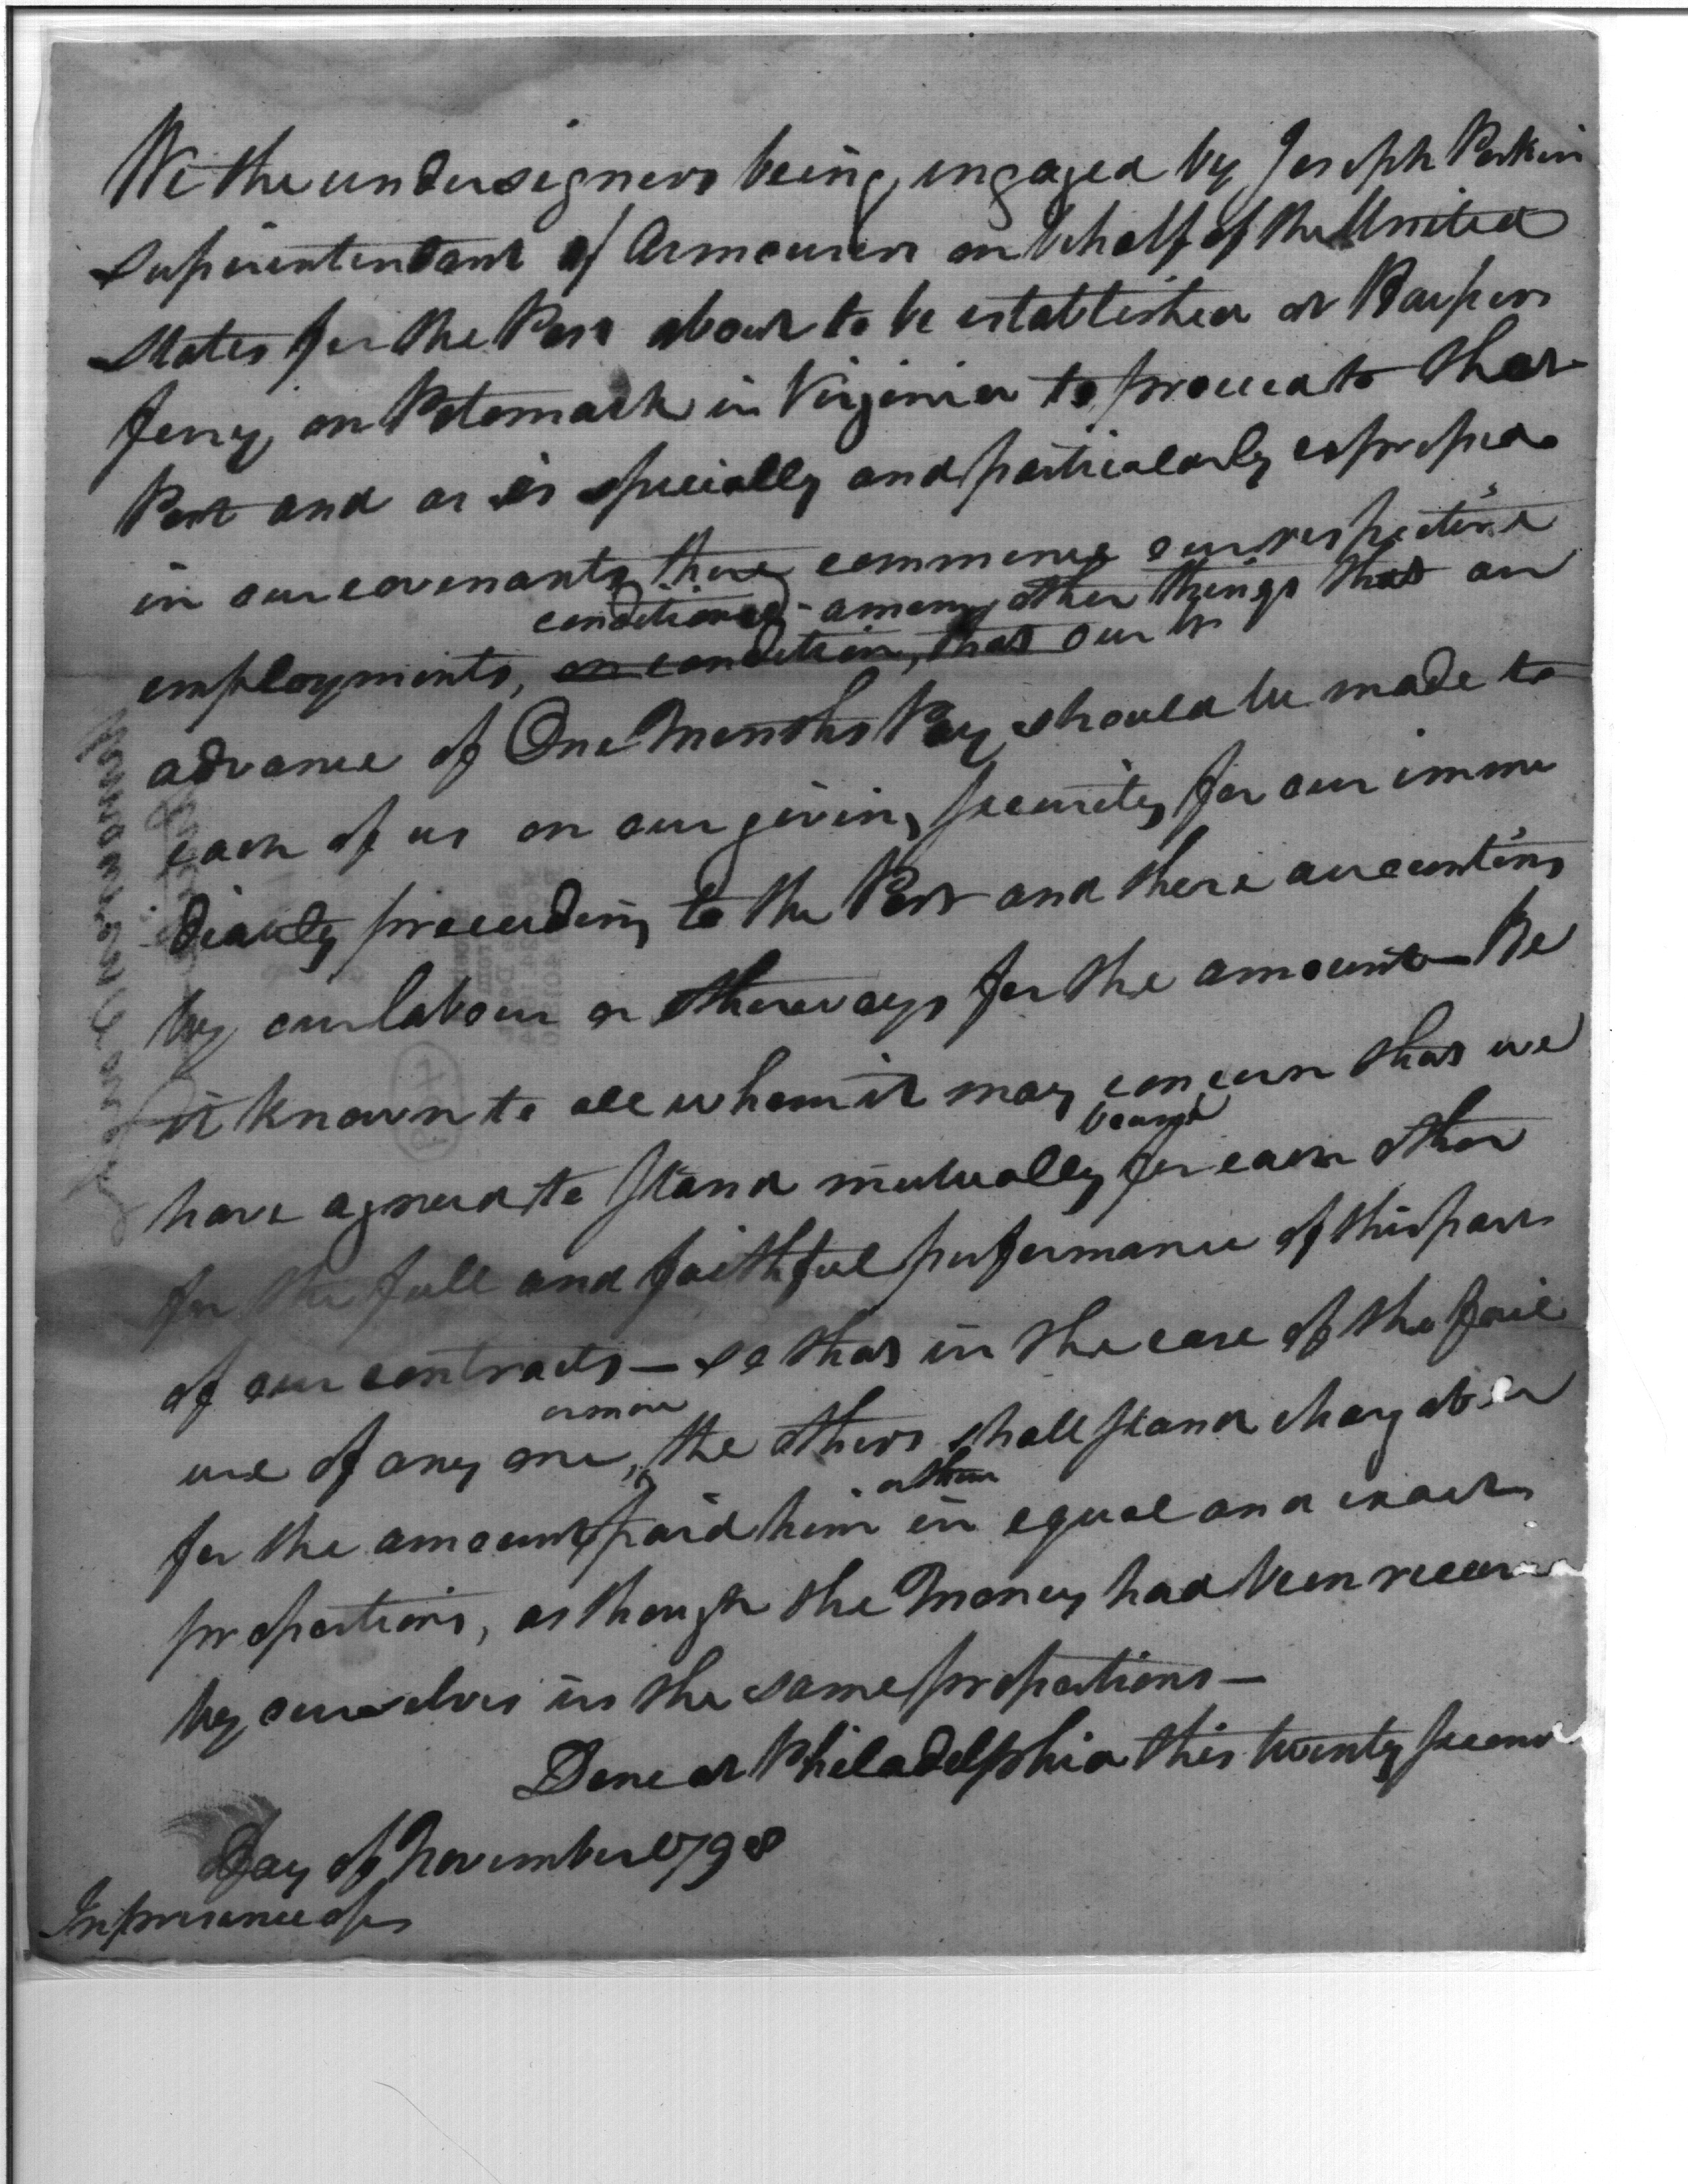 We the undersigners being engaged by Joseph Perkin
superintendant of Armourers on behalf of the United
States for the Post about to be established at Harpers
ferry on Potomack in Virginia to proceed to that
Post and as is specially and particularly expressed
in our covenants there commence our respective
conditioned - among other things that an
employments, on condition, that our
advance of One Months Pay should be made to
each of us on our giving security for our imme
diately proceeding to the Post and there accounting
by our labour or otherways for the amount — Be
it known to all whom it may concern that we
bound
have agreed to stand mutually for each other
for the full and faithful performance of this part
of our contracts — so that in the case of the fail
or more
ure of any one, the others shall stand chargable
or them
for the amount paid him in equal and exact
proportions, as though the Money had been receiv
by ourselves in the same proportions —
Done at Philadelphia this twenty second
Day of November 1798
In presence of